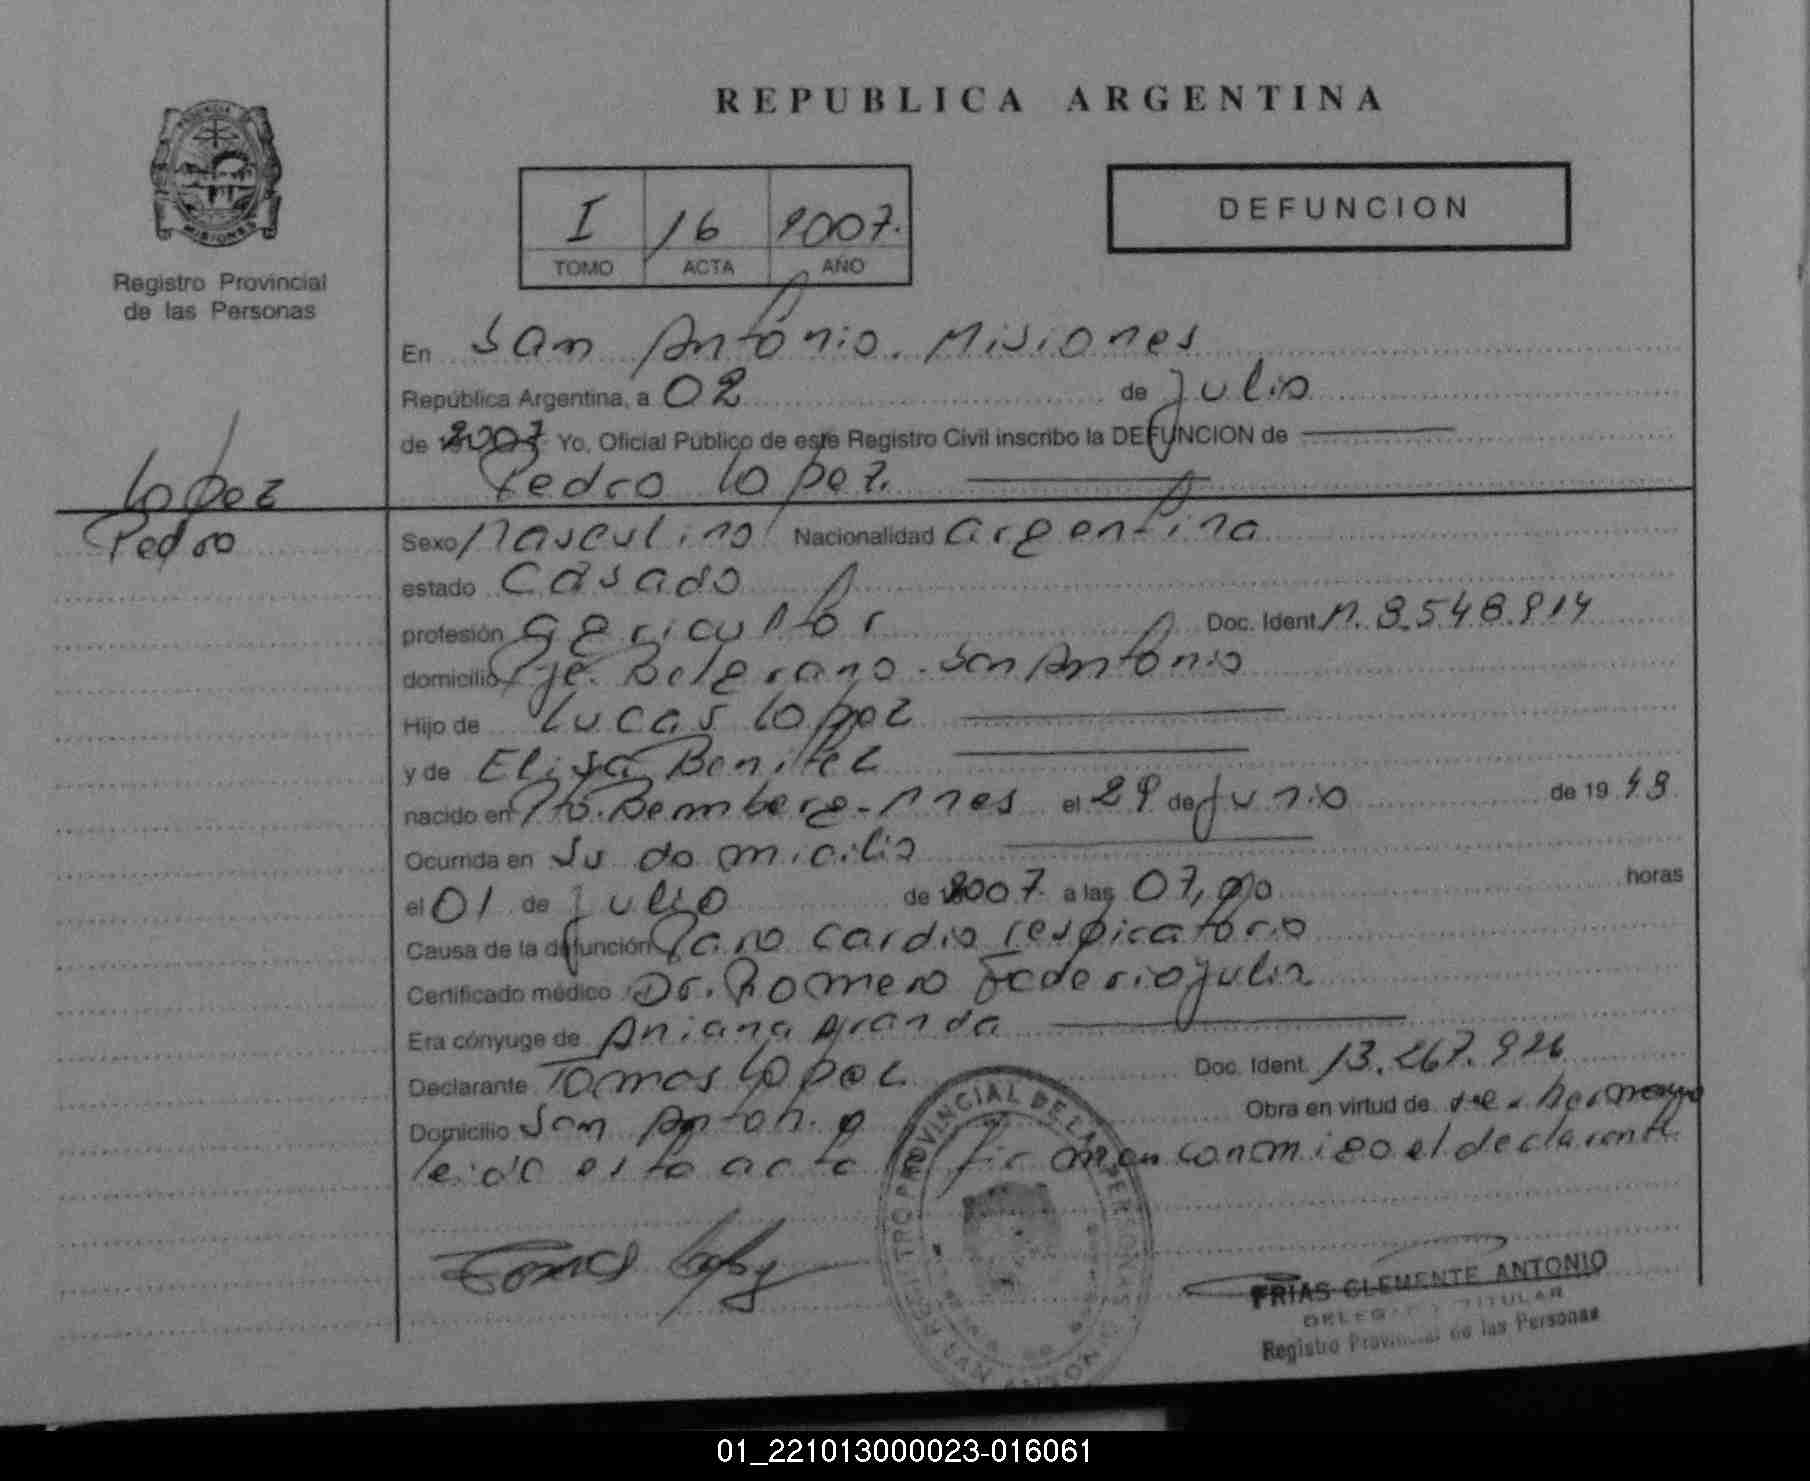 REPUBLICA ARGENTINA
I 16 2007.
TOMO ACTA AÑO
DEFUNCION
MISIONES
Registro Provincial
de las Personas
En San Antonio. Misiones
República Argentina, a 02 de Julio
de 2007 Yo, Oficial Público de este Registro Civil inscribo la DEFUNCION de
Pedro Lopez.
Lopez
Pedro
Sexo Masculino Nacionalidad argentina
estado Casado
profesión agricultor Doc. Ident. M. 8.548.914
domicilio Pje. Belgrano. San Antonio
Hijo de Lucas Lopez
y de Elisa Benitez
nacido en Pto. Bemberg - Mnes el 29 de Junio de 19 48
Ocurrida en Su domicilio
el 01 de Julio de 2007. a las 07,00 horas
Causa de la defunción Paro cardio respiratorio
Certificado médico Dr. Romero Julio
Era cónyuge de Aniana
Declarante Tomas Lopez Doc. Ident. 13.267.926
Domicilio San Antonio Obra en virtud de ser hermano
leida esta acta la firman conmigo el declarante.
Tomas Lopez
REGISTRO PROVINCIAL DE LAS PERSONAS
SAN ANTONIO
FRIAS CLEMENTE ANTONIO
DELEGADO TITULAR
Registro Provincial de las Personas
01_221013000023-016061